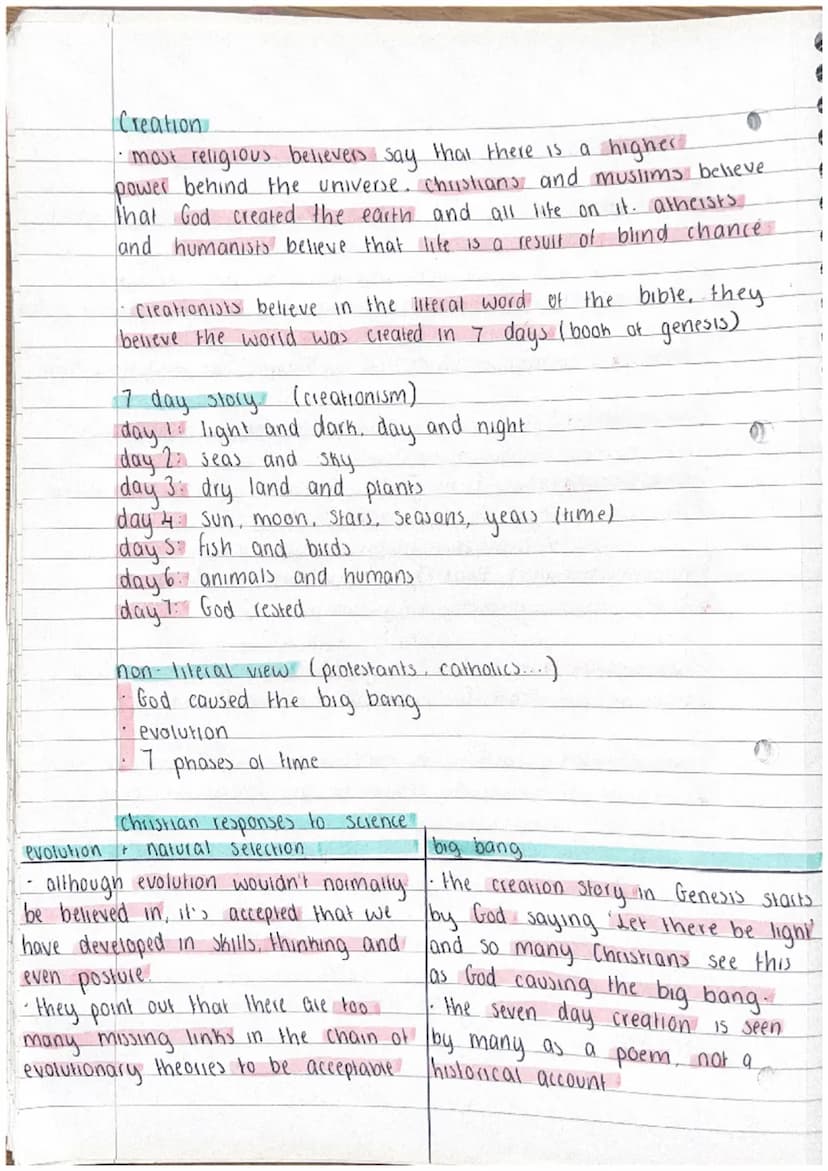 Creation
· most religious believers say that there is a higher
power behind the universe. christians and muslims believe
that God created the earth and all life on it. atheists
and humanists believe that life is a result of blind chance
· creationists believe in the literal word of the bible. they
believe the world was created in 7 days (book of genesis)
7 day story (creationism)
day 1: light and dark. day and night
day 2: seas and sky
day 3: dry land and plants
day 4: sun, moon, stars, seasons, years (time)
day 5: fish and birds
day 6: animals and humans
day 7: God rested
non-literal view (protestants, catholics...)
· God caused the big bang
· evolution
· 7 phases of time
Christian responses to science
evolution + natural selection
· although evolution wouldn't normally
be believed in, it's accepted that we
have developed in skills, thinking and
even posture.
· they point out that there are too
many missing links in the chain of
evolutionary theories to be acceptable
big bang
· the creation story in Genesis starts
by God saying 'Let there be light'
and so many Christians see this
as God causing the big bang.
· the seven day creation is seen
by many as a poem, not a
historical account